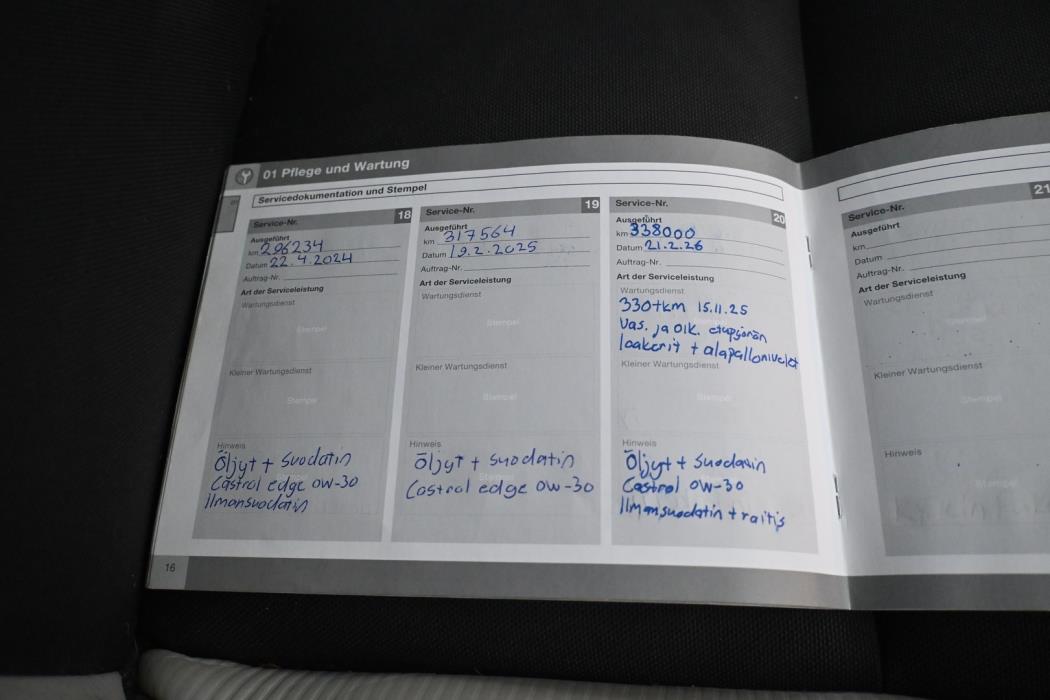 01 Pflege und Wartung
Servicedokumentation und Stempel
Service-Nr. 18
Ausgeführt
km 296234
Datum 22.4.2024
Auftrag-Nr.
Art der Serviceleistung
Wartungsdienst
Stempel
Kleiner Wartungsdienst
Stempel
Hinweis
Öljyt + Suodatin
Castrol edge 0W-30
Ilmansuodatin
Service-Nr. 19
Ausgeführt
km 317564
Datum 19.2.2025
Auftrag-Nr.
Art der Serviceleistung
Wartungsdienst
Stempel
Kleiner Wartungsdienst
Stempel
Hinweis
Öljyt + Suodatin
Castrol edge 0W-30
Service-Nr. 20
Ausgeführt
km 338000
Datum 21.2.26
Auftrag-Nr.
Art der Serviceleistung
Wartungsdienst
330tkm 15.11.25
Vas. ja oik. etupyörän
laakerit + alapallonivelet
Kleiner Wartungsdienst
Stempel
Hinweis
Öljyt + Suodatin
Castrol 0W-30
Ilmansuodatin + raitis
16
Service-Nr. 21
Ausgeführt
km
Datum
Auftrag-Nr.
Art der Serviceleistung
Wartungsdienst
Stempel
Kleiner Wartungsdienst
Stempel
Hinweis
Stempel